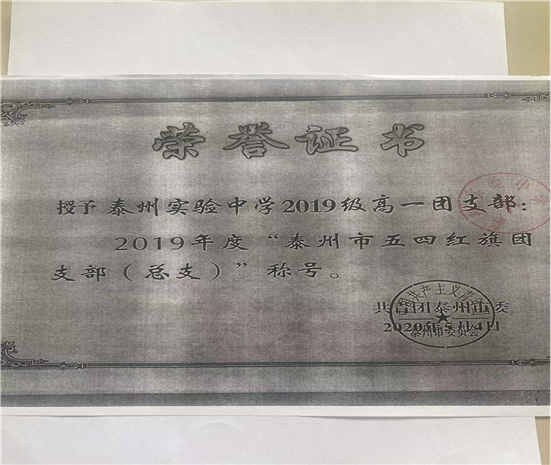 荣誉证书
授予 泰州实验中学2019级高一团支部：
2019年度“泰州市五四红旗团
支部（总支）”称号。
共青团泰州市委
2020年5月4日
泰州市委员会